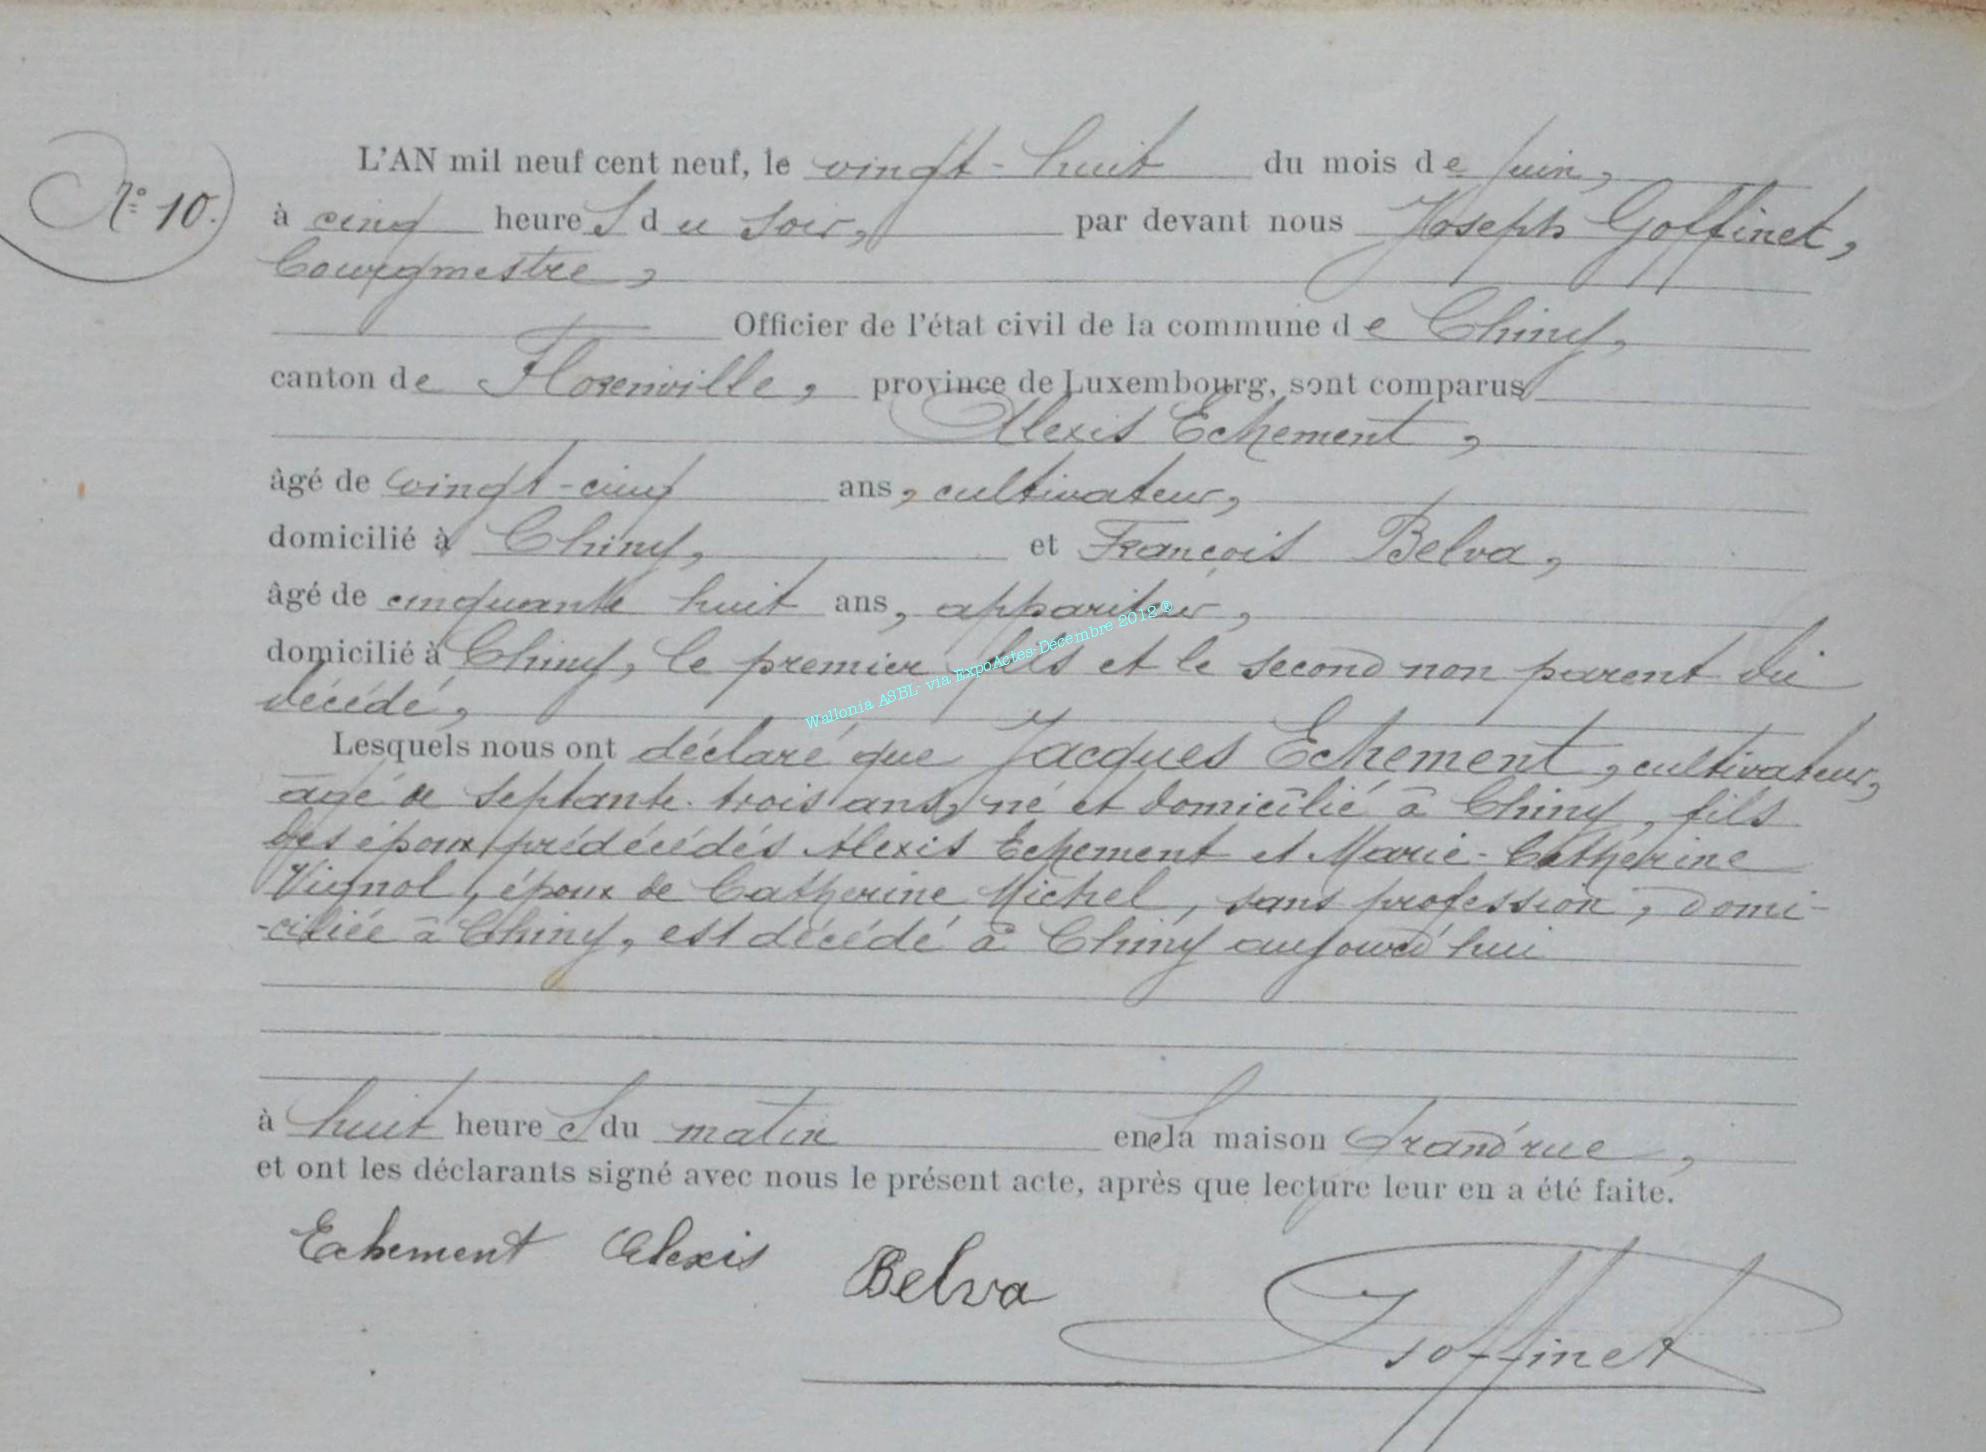 N° 10.
L'AN mil neuf cent neuf, le vingt-huit du mois de juin,
à cinq heures du soir, par devant nous Joseph Goffinet,
bourgmestre,
Officier de l'état civil de la commune de Chiny,
canton de Florenville, province de Luxembourg, sont comparus
Alexis Echement,
âgé de vingt-cinq ans, cultivateur,
domicilié à Chiny, et François Belva,
âgé de cinquante huit ans, appariteur,
domicilié à Chiny, le premier fils et le second non parent du
décédé,
Lesquels nous ont déclaré que Jacques Echement, cultivateur,
âgé de septante-trois ans, né et domicilié à Chiny, fils
des époux prédécédés Alexis Echement et Marie-Catherine
Vignol, époux de Catherine Michel, sans profession, domi-
-ciliée à Chiny, est décédé à Chiny aujourd'hui
à huit heures du matin en sa maison Grand'rue,
et ont les déclarants signé avec nous le présent acte, après que lecture leur en a été faite.
Echement Alexis
Belva
JGoffinet
Wallonia ASBL- via ExpoActes-Décembre 2012 ®